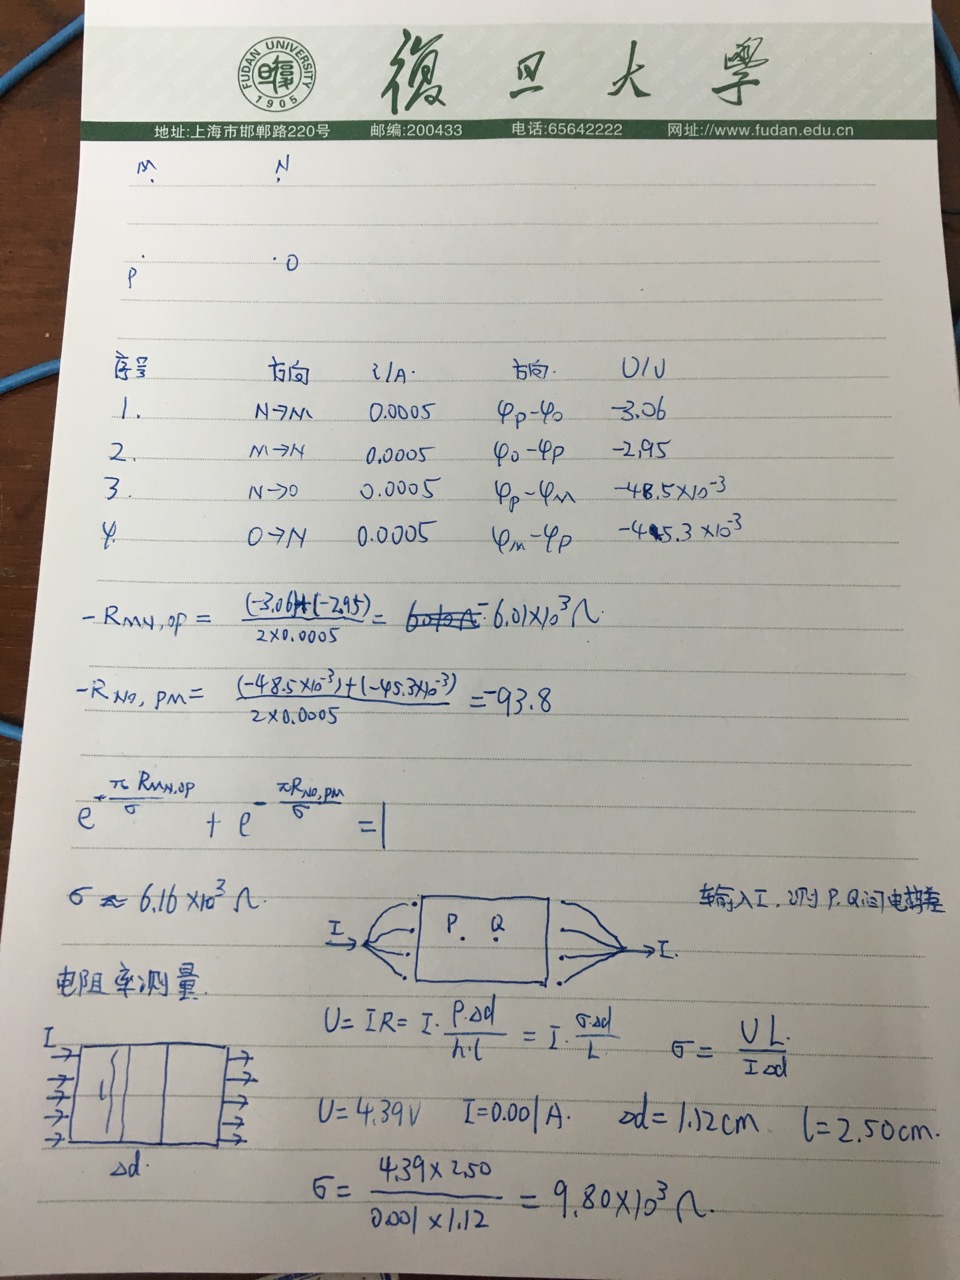 FUDAN UNIVERSITY 1905 復旦大學
地址:上海市邯郸路220号 邮编:200433 电话:65642222 网址://www.fudan.edu.cn
M N
P O
序号 方向 i/A. 方向. U/V
1. N→M 0.0005 φp-φo -3.06
2. M→N 0.0005 φo-φp -2.95
3. N→O 0.0005 φp-φM -48.5×10⁻³
4. O→N 0.0005 φM-φp -45.3×10⁻³
-RMN,OP = ((-3.06)+(-2.95))/(2×0.0005) = -6.01×10³Ω
-RNO,PM = ((-48.5×10⁻³)+(-45.3×10⁻³))/(2×0.0005) = -93.8
e^(-πRMN,OP/σ) + e^(-πRNO,PM/σ) = 1
σ ≈ 6.16×10³Ω.
输入I.测P.Q间电势差
I P Q I.
电阻率测量.
U=IR=I·(ρ·Δd)/(h·l) = I·(σ·Δd)/L σ=UL/(IΔd)
I l
Δd.
U=4.39V I=0.001A. Δd=1.12cm l=2.50cm.
σ= (4.39×2.50)/(0.001×1.12) = 9.80×10³Ω.